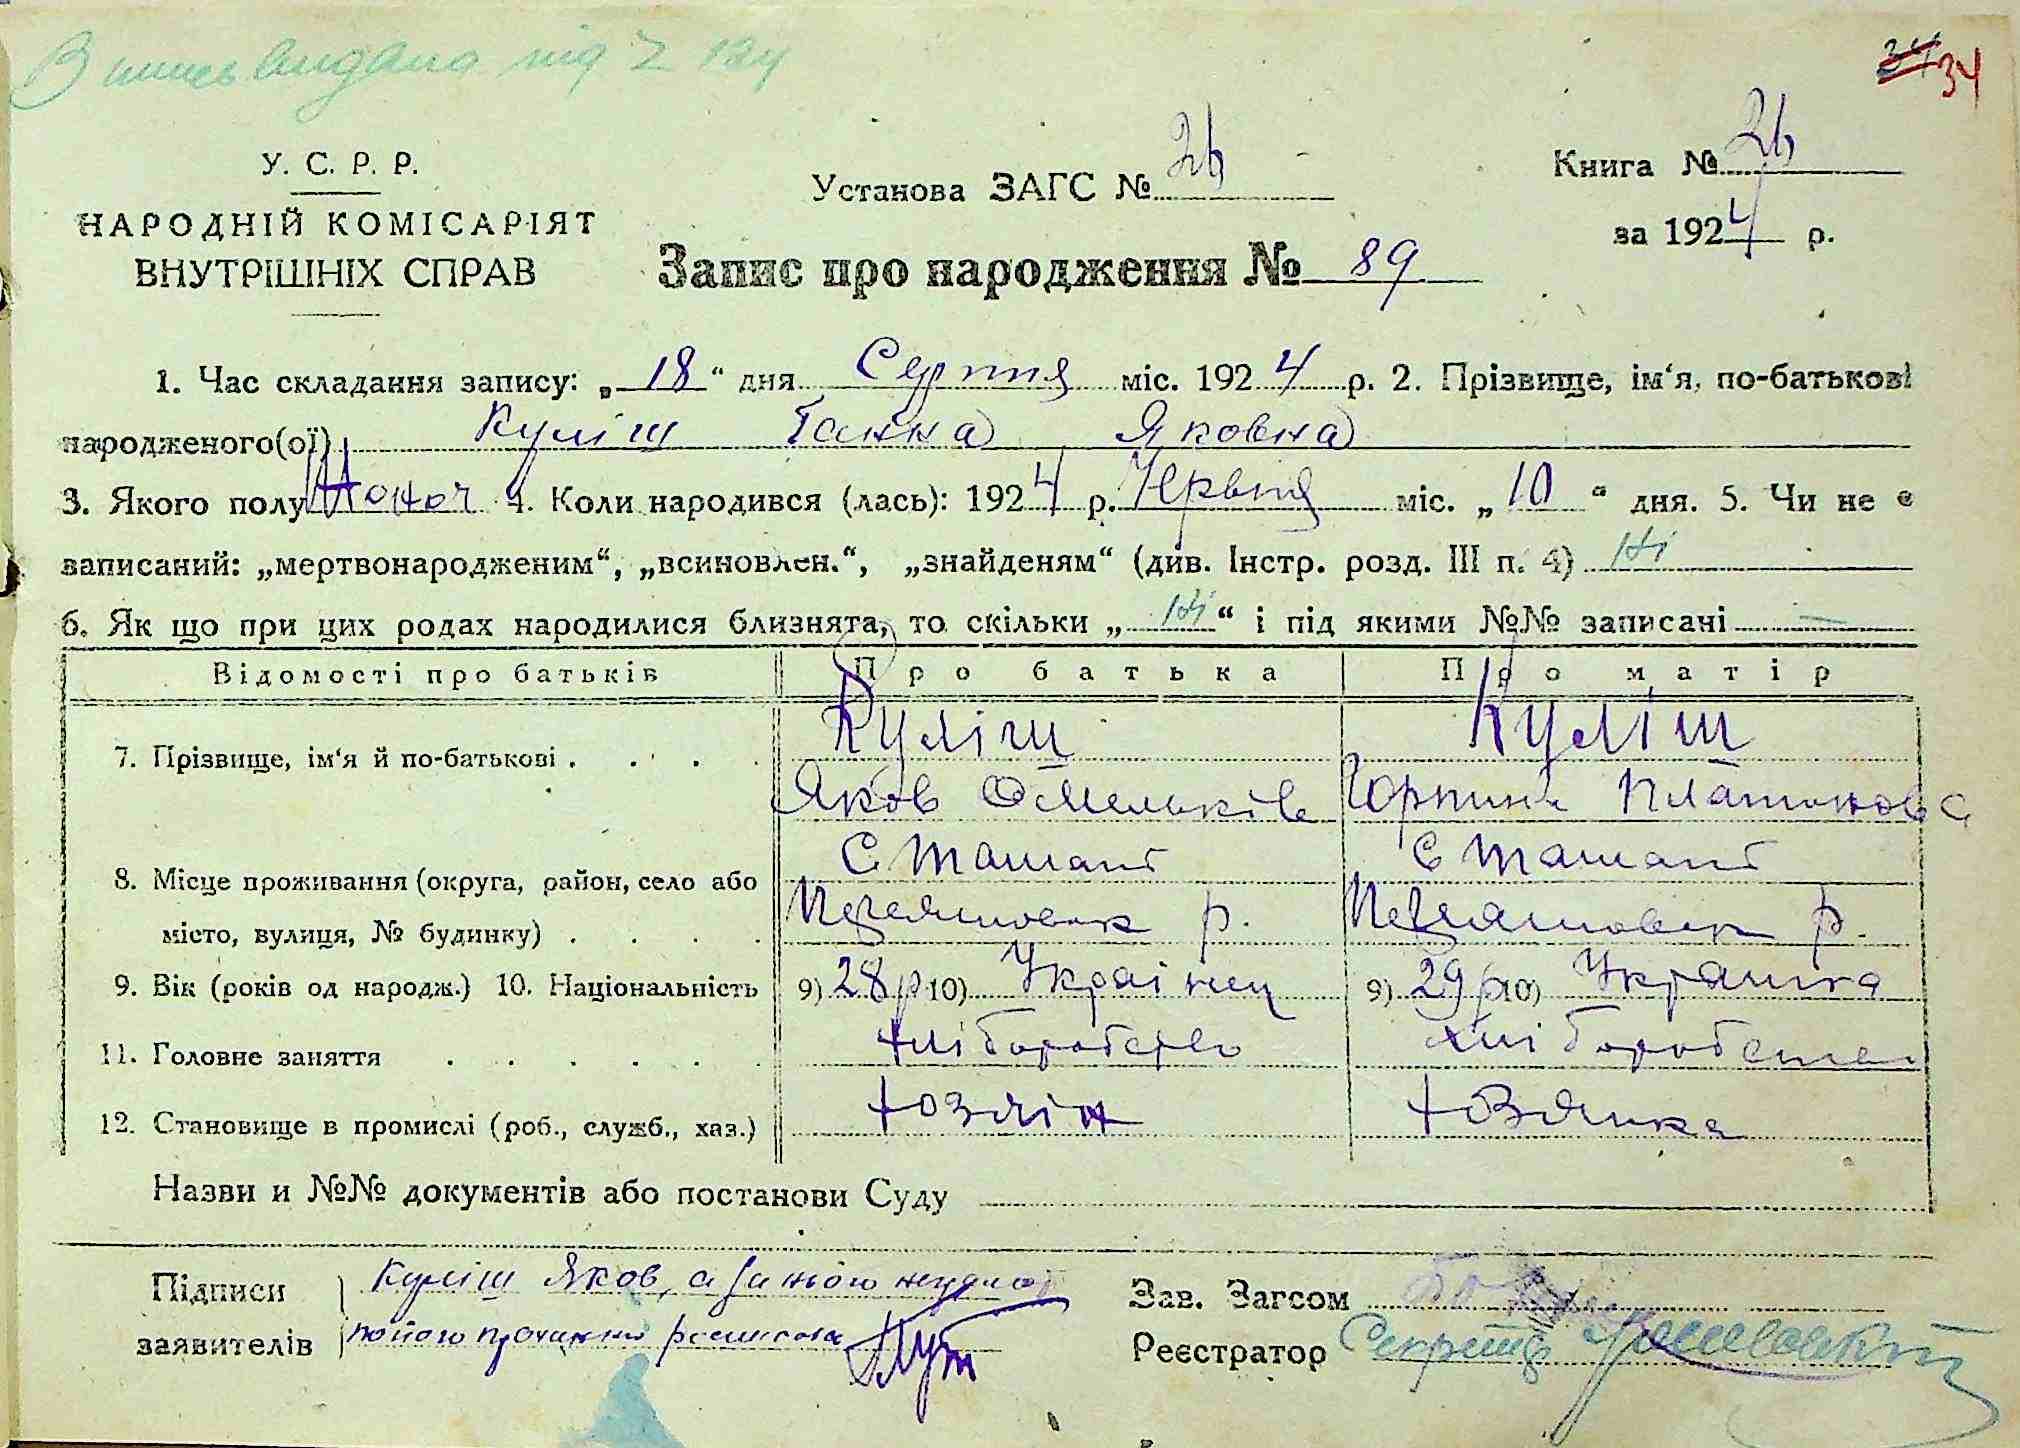 Випись видана під № 124
34 34
У. С. Р. Р.
НАРОДНІЙ КОМІСАРІЯТ
ВНУТРІШНІХ СПРАВ
Установа ЗАГС № 26
Книга № 26
за 1924 р.
Запис про народження № 89
1. Час складання запису: „18“ дня Серпня міс. 1924 р. 2. Прізвище, ім‘я, по-батькові
народженого(ої) Куліш Ганна Яковна
3. Якого полу Жоноч 4. Коли народився (лась): 1924 р. Червня міс. „10“ дня. 5. Чи не є
записаний: „мертвонародженим“, „всиновлен.“, „знайденям“ (див. Інстр. розд. III п. 4) Ні
6. Як що при цих родах народилися близнята, то скільки „Ні“ і під якими №№ записані —
Відомості про батьків Про батька Про матір
7. Прізвище, ім‘я й по-батькові . . . . Куліш Куліш
Яков Омельків Горпина Платонова
8. Місце проживання (округа, район, село або С Ташань С Ташань
місто, вулиця, № будинку) . . . . р. р.
9. Вік (років од народж.) 10. Національність 9) 28 р 10) Украінец 9) 29 р 10) Украінка
11. Головне заняття . . . . . . хліборобство хліборобство
12. Становище в промислі (роб., служб., хаз.) хозяін хозяика
Назви и №№ документів або постанови Суду
Підписи Куліш Яков, а за нього неграмот
заявителів по його проханню росписався
Зав. Загсом
Реєстратор Секретар